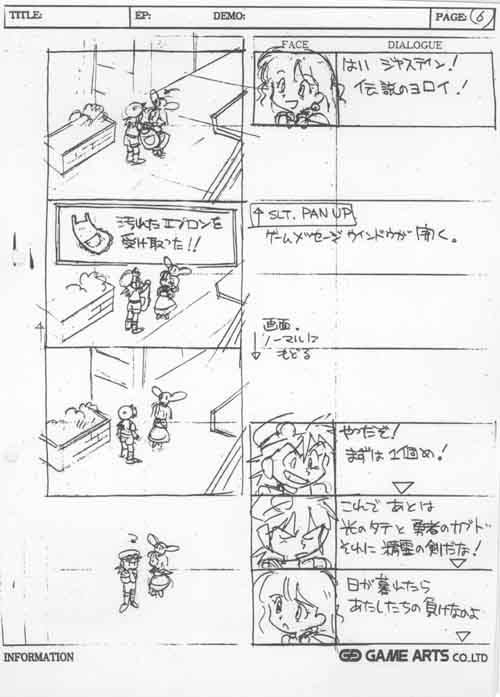 TITLE: EP: DEMO: PAGE: 6
FACE DIALOGUE
はい ジャスティン!
伝説のヨロイ!
汚れたエプロンを
受け取った!!
↑ SLT. PAN UP
ゲームメッセージウインドウが開く。
画面。
ノーマルに
もどる
やったぞ!
まずは1個め!
これで あとは
光のタテと勇者のカブト
それに 精霊の剣だな!
日が暮れたら
あたしたちの負けなのよ
INFORMATION
GAME ARTS CO.,LTD